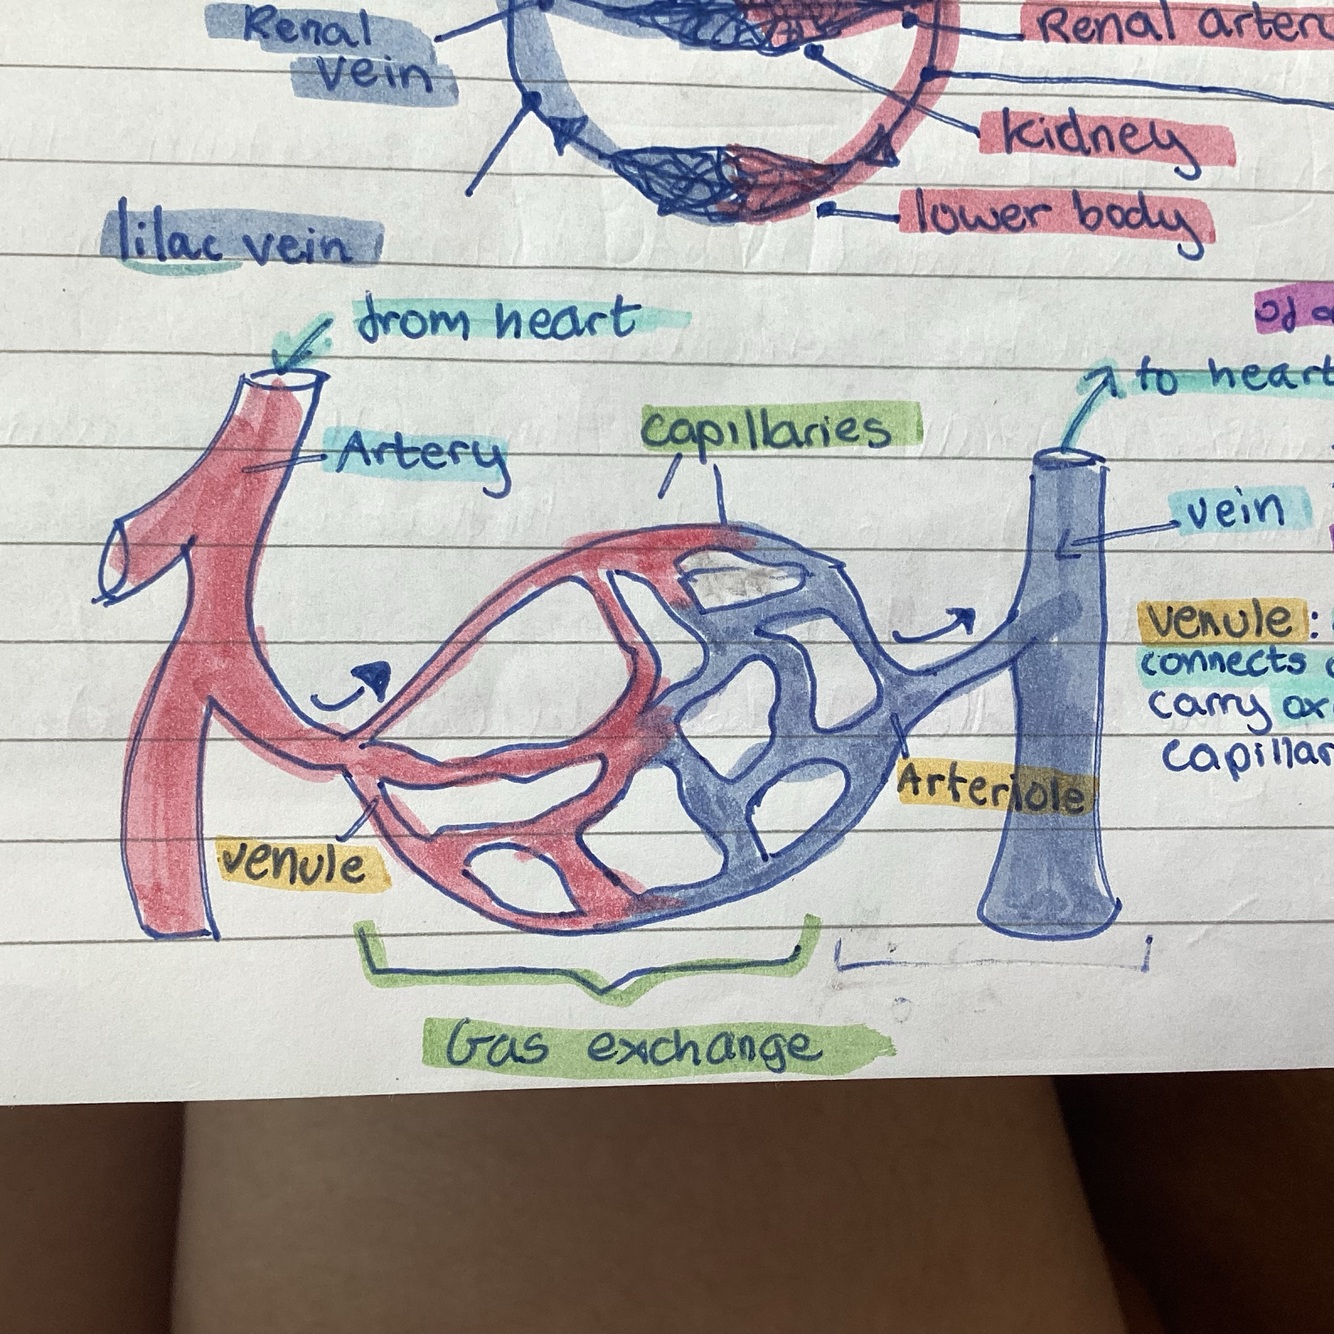 Renal
vein
Renal arter
kidney
lower body
lilac vein
from heart
to heart
Artery
capillaries
vein
venule:
connects
carry ox
capillar
Arteriole
venule
Gas exchange